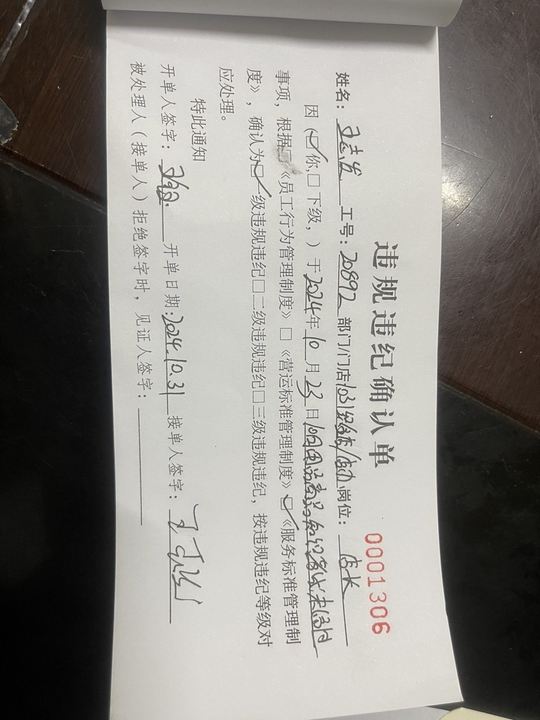 违规违纪确认单
0001306
姓名： 工号：20892 部门/门店 岗位：店长
因（☑你，□下级，）于2024年10月23日
事项，根据□《员工行为管理制度》□《营运标准管理制度》☑《服务标准管理制
度》，确认为☑一级违规违纪□二级违规违纪□三级违规违纪，按违规违纪等级对
应处理。
特此通知
开单人签字： 开单日期：2024.10.31 接单人签字：
被处理人（接单人）拒绝签字时，见证人签字：